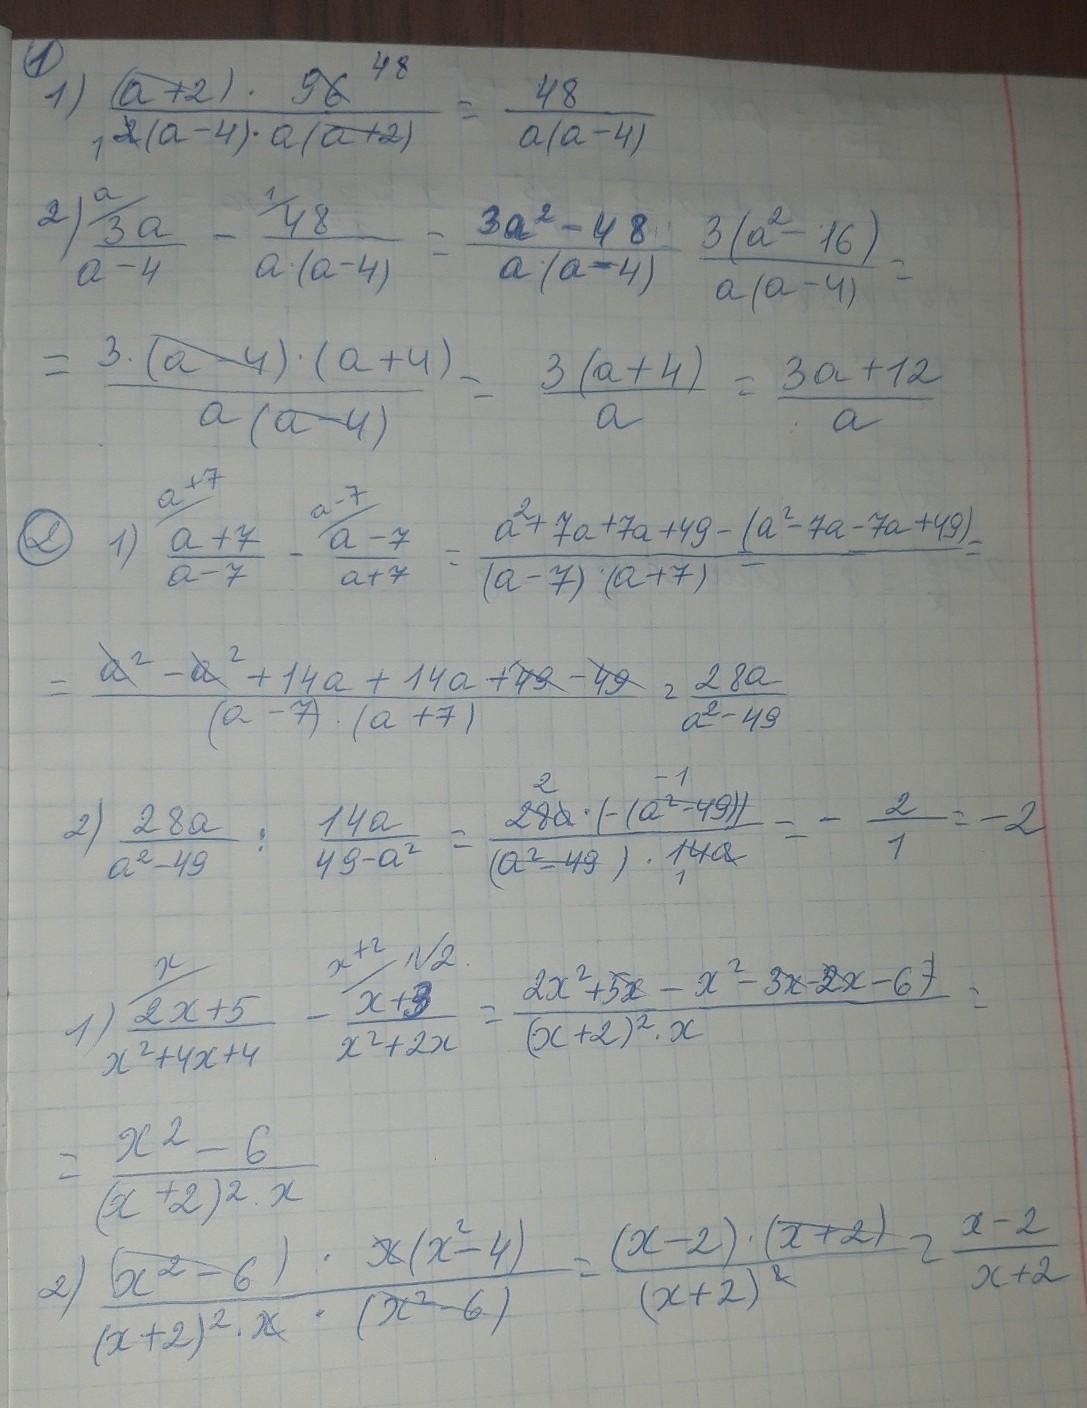 ①
1) ((a+2) · 96 48)/(1 2(a-4) · a(a+2)) = 48/(a(a-4))
2) a/ 3a/(a-4) - 1/ 48/(a·(a-4)) = (3a²-48)/(a·(a-4)) 3(a²-16)/(a(a-4)) =
= (3·(a-4)·(a+4))/(a(a-4)) = 3(a+4)/a = (3a+12)/a
② 1) a+7/ (a+7)/(a-7) - a-7/ (a-7)/(a+7) = (a²+7a+7a+49-(a²-7a-7a+49))/((a-7)·(a+7)) =
= (a²-a²+14a+14a+49-49)/((a-7)·(a+7)) = 28a/(a²-49)
2) 28a/(a²-49) : 14a/(49-a²) = (2 28a·(-(a²-49)) -1)/((a²-49)·14a 1) = - 2/1 = -2
1) x/ (2x+5)/(x²+4x+4) - x+2/ №2. (x+3)/(x²+2x) = (2x²+5x-x²-3x-2x-6)/((x+2)²·x) =
= (x²-6)/((x+2)²·x)
2) ((x²-6) · x(x²-4))/((x+2)²·x · (x²-6)) = ((x-2)·(x+2))/((x+2)²) = (x-2)/(x+2)